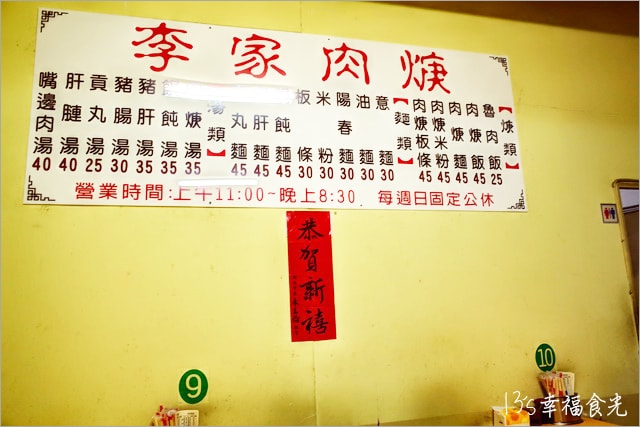 李家肉焿
【焿類】
魯肉飯 25
肉焿飯 45
肉焿麵 45
肉焿米粉 45
肉焿板條 45
【麵類】
意麵 30
油麵 30
陽春麵 30
米粉 30
板條 30
飩麵 45
肝麵 45
丸麵 45
湯類】
焿湯 35
飩湯 35
豬肝湯 35
豬腸湯 30
貢丸湯 25
肝腱湯 40
嘴邊肉湯 40
營業時間:上午11:00~晚上8:30 每週日固定公休
恭賀新禧
9
10
13's幸福食光